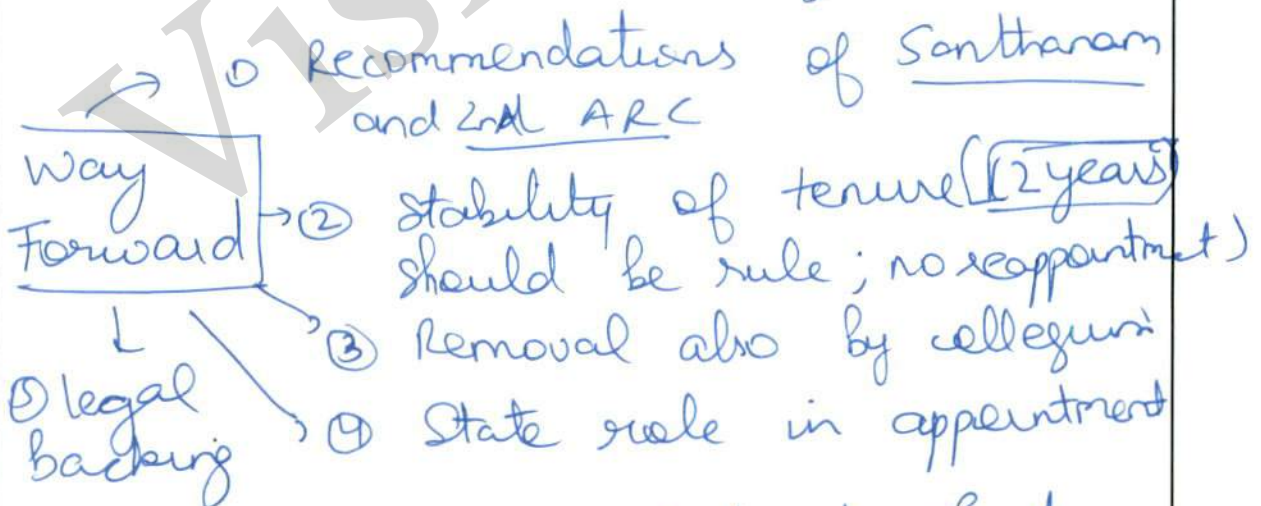 ① Recommendations of Santhanam
and 2nd ARC
Way
Forward
② Stability of tenure ((2 years)
should be rule; no reappointmet)
③ Removal also by collegium
④ State role in appointment
⑤ legal
backing